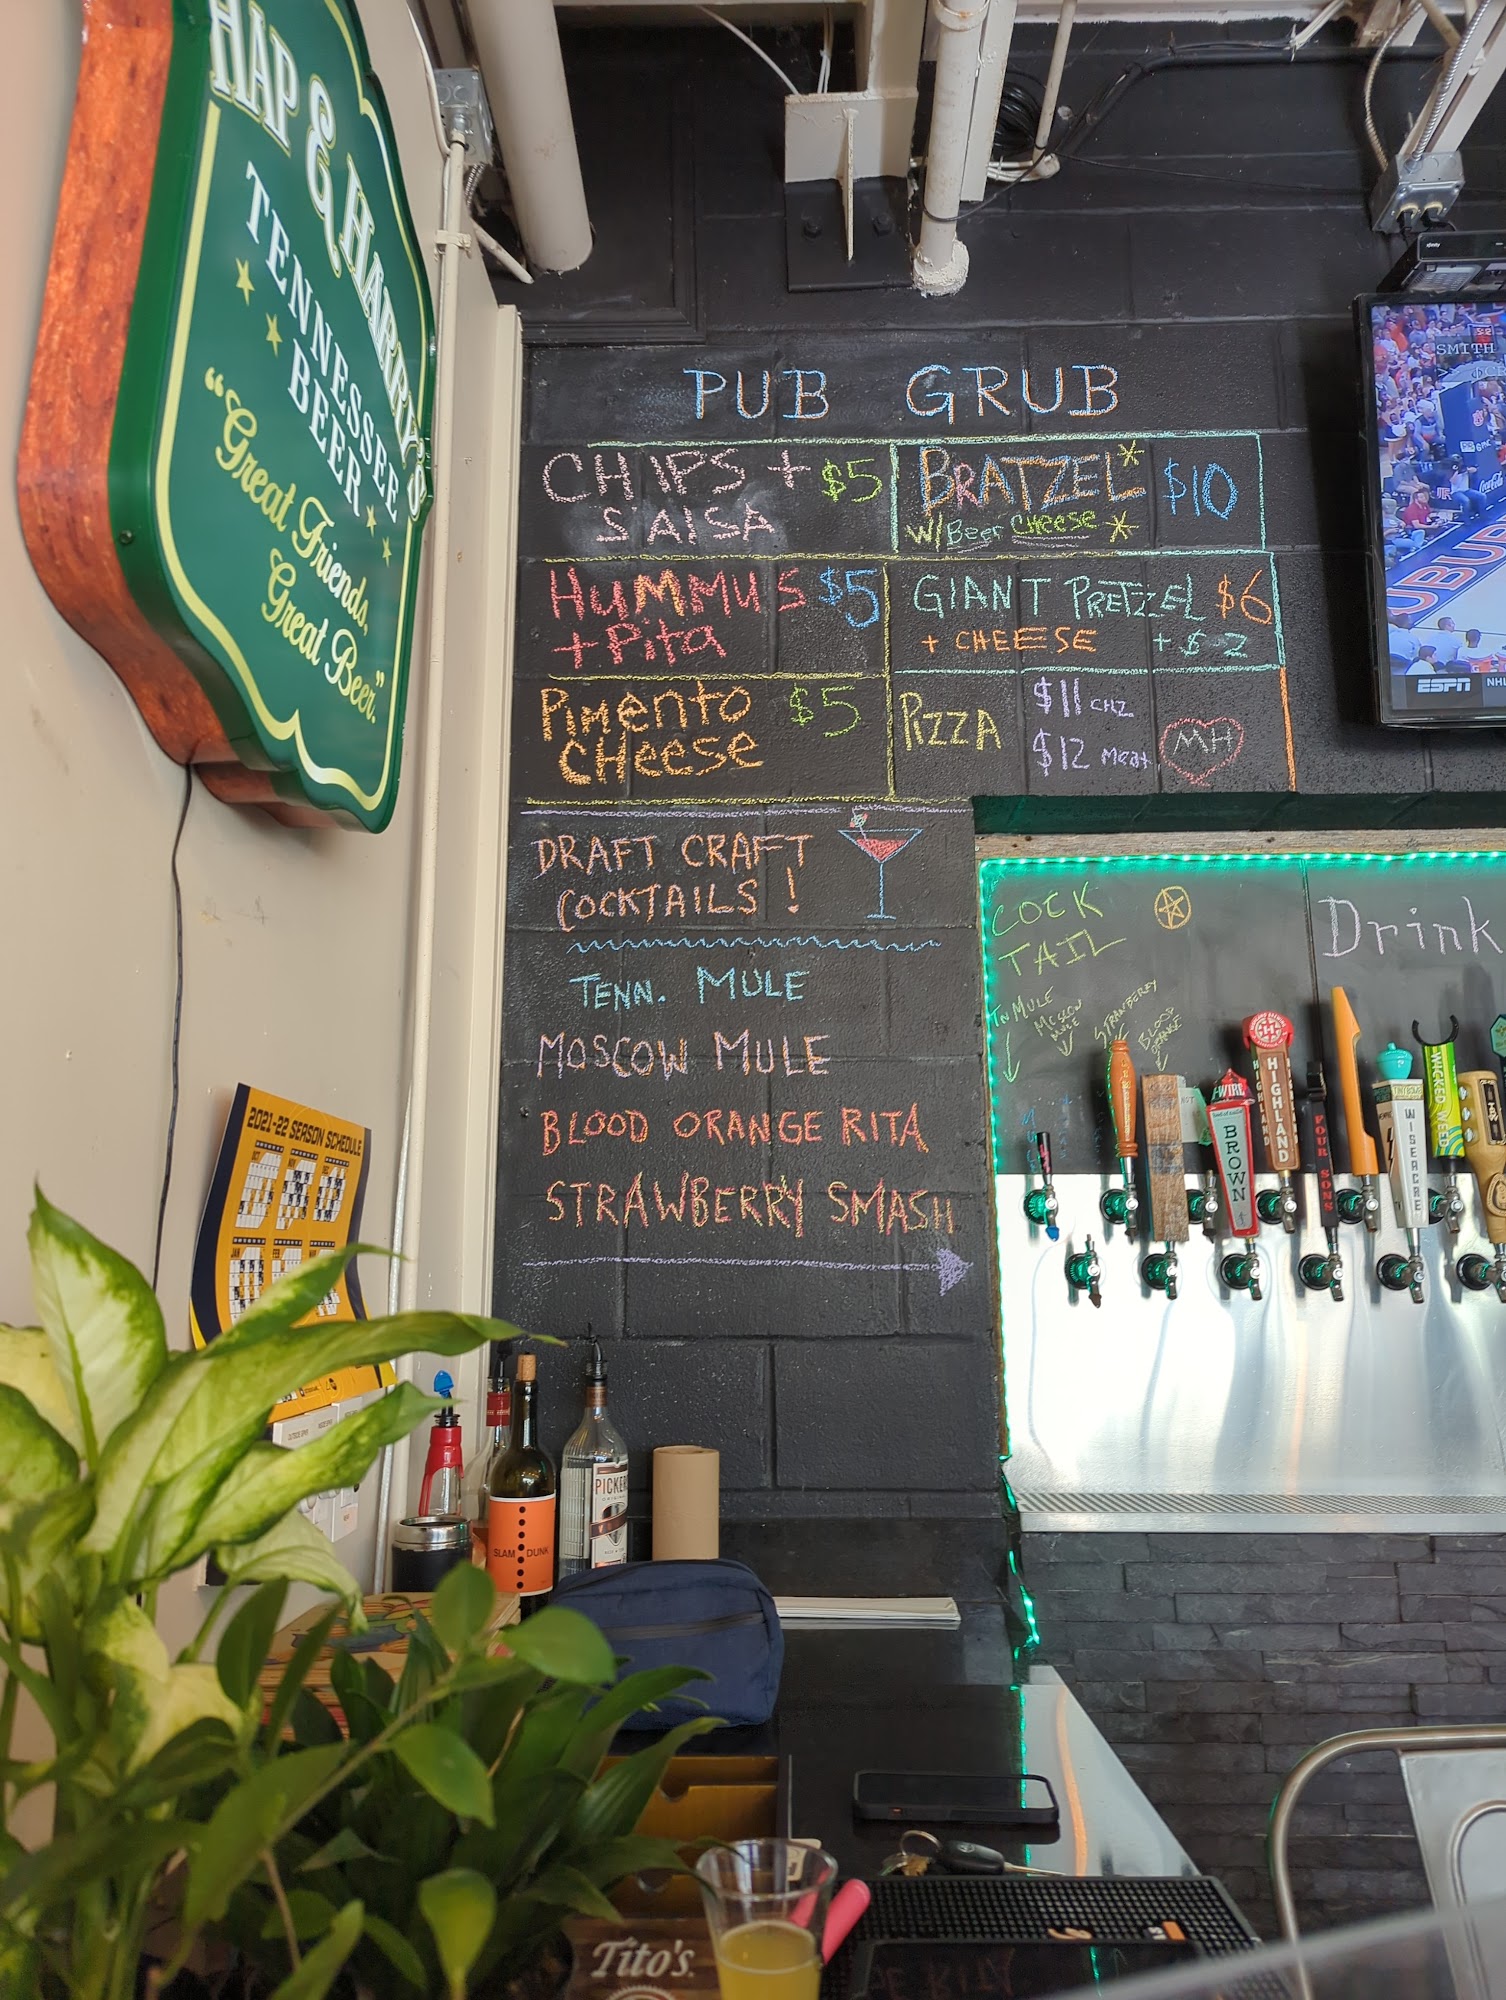 HAP & HARRY'S
TENNESSEE
BEER
"Great Friends,
Great Beer."
PUB GRUB
CHIPS + $5
SALSA
BRATZEL* $10
W/ Beer CHEESE *
HUMMUS $5
+ Pita
GIANT PRETZEL $6
+ CHEESE + $2
PIMENTO $5
CHEESE
PIZZA $11 CHZ
$12 MEAT
MH
DRAFT CRAFT
COCKTAILS!
TENN. MULE
MOSCOW MULE
BLOOD ORANGE RITA
STRAWBERRY SMASH
COCK
TAIL
Drink
TN MULE
MOSCOW
MULE
STRAWBERRY
BLOOD
ORANGE
SMITH
ESPN NHL
xfinity
2021-22 SEASON SCHEDULE
HIGHLAND
BROWN
FOUR SONS
WISEACRE
WICKED WEED
SLAM DUNK
PICKERS
Tito's